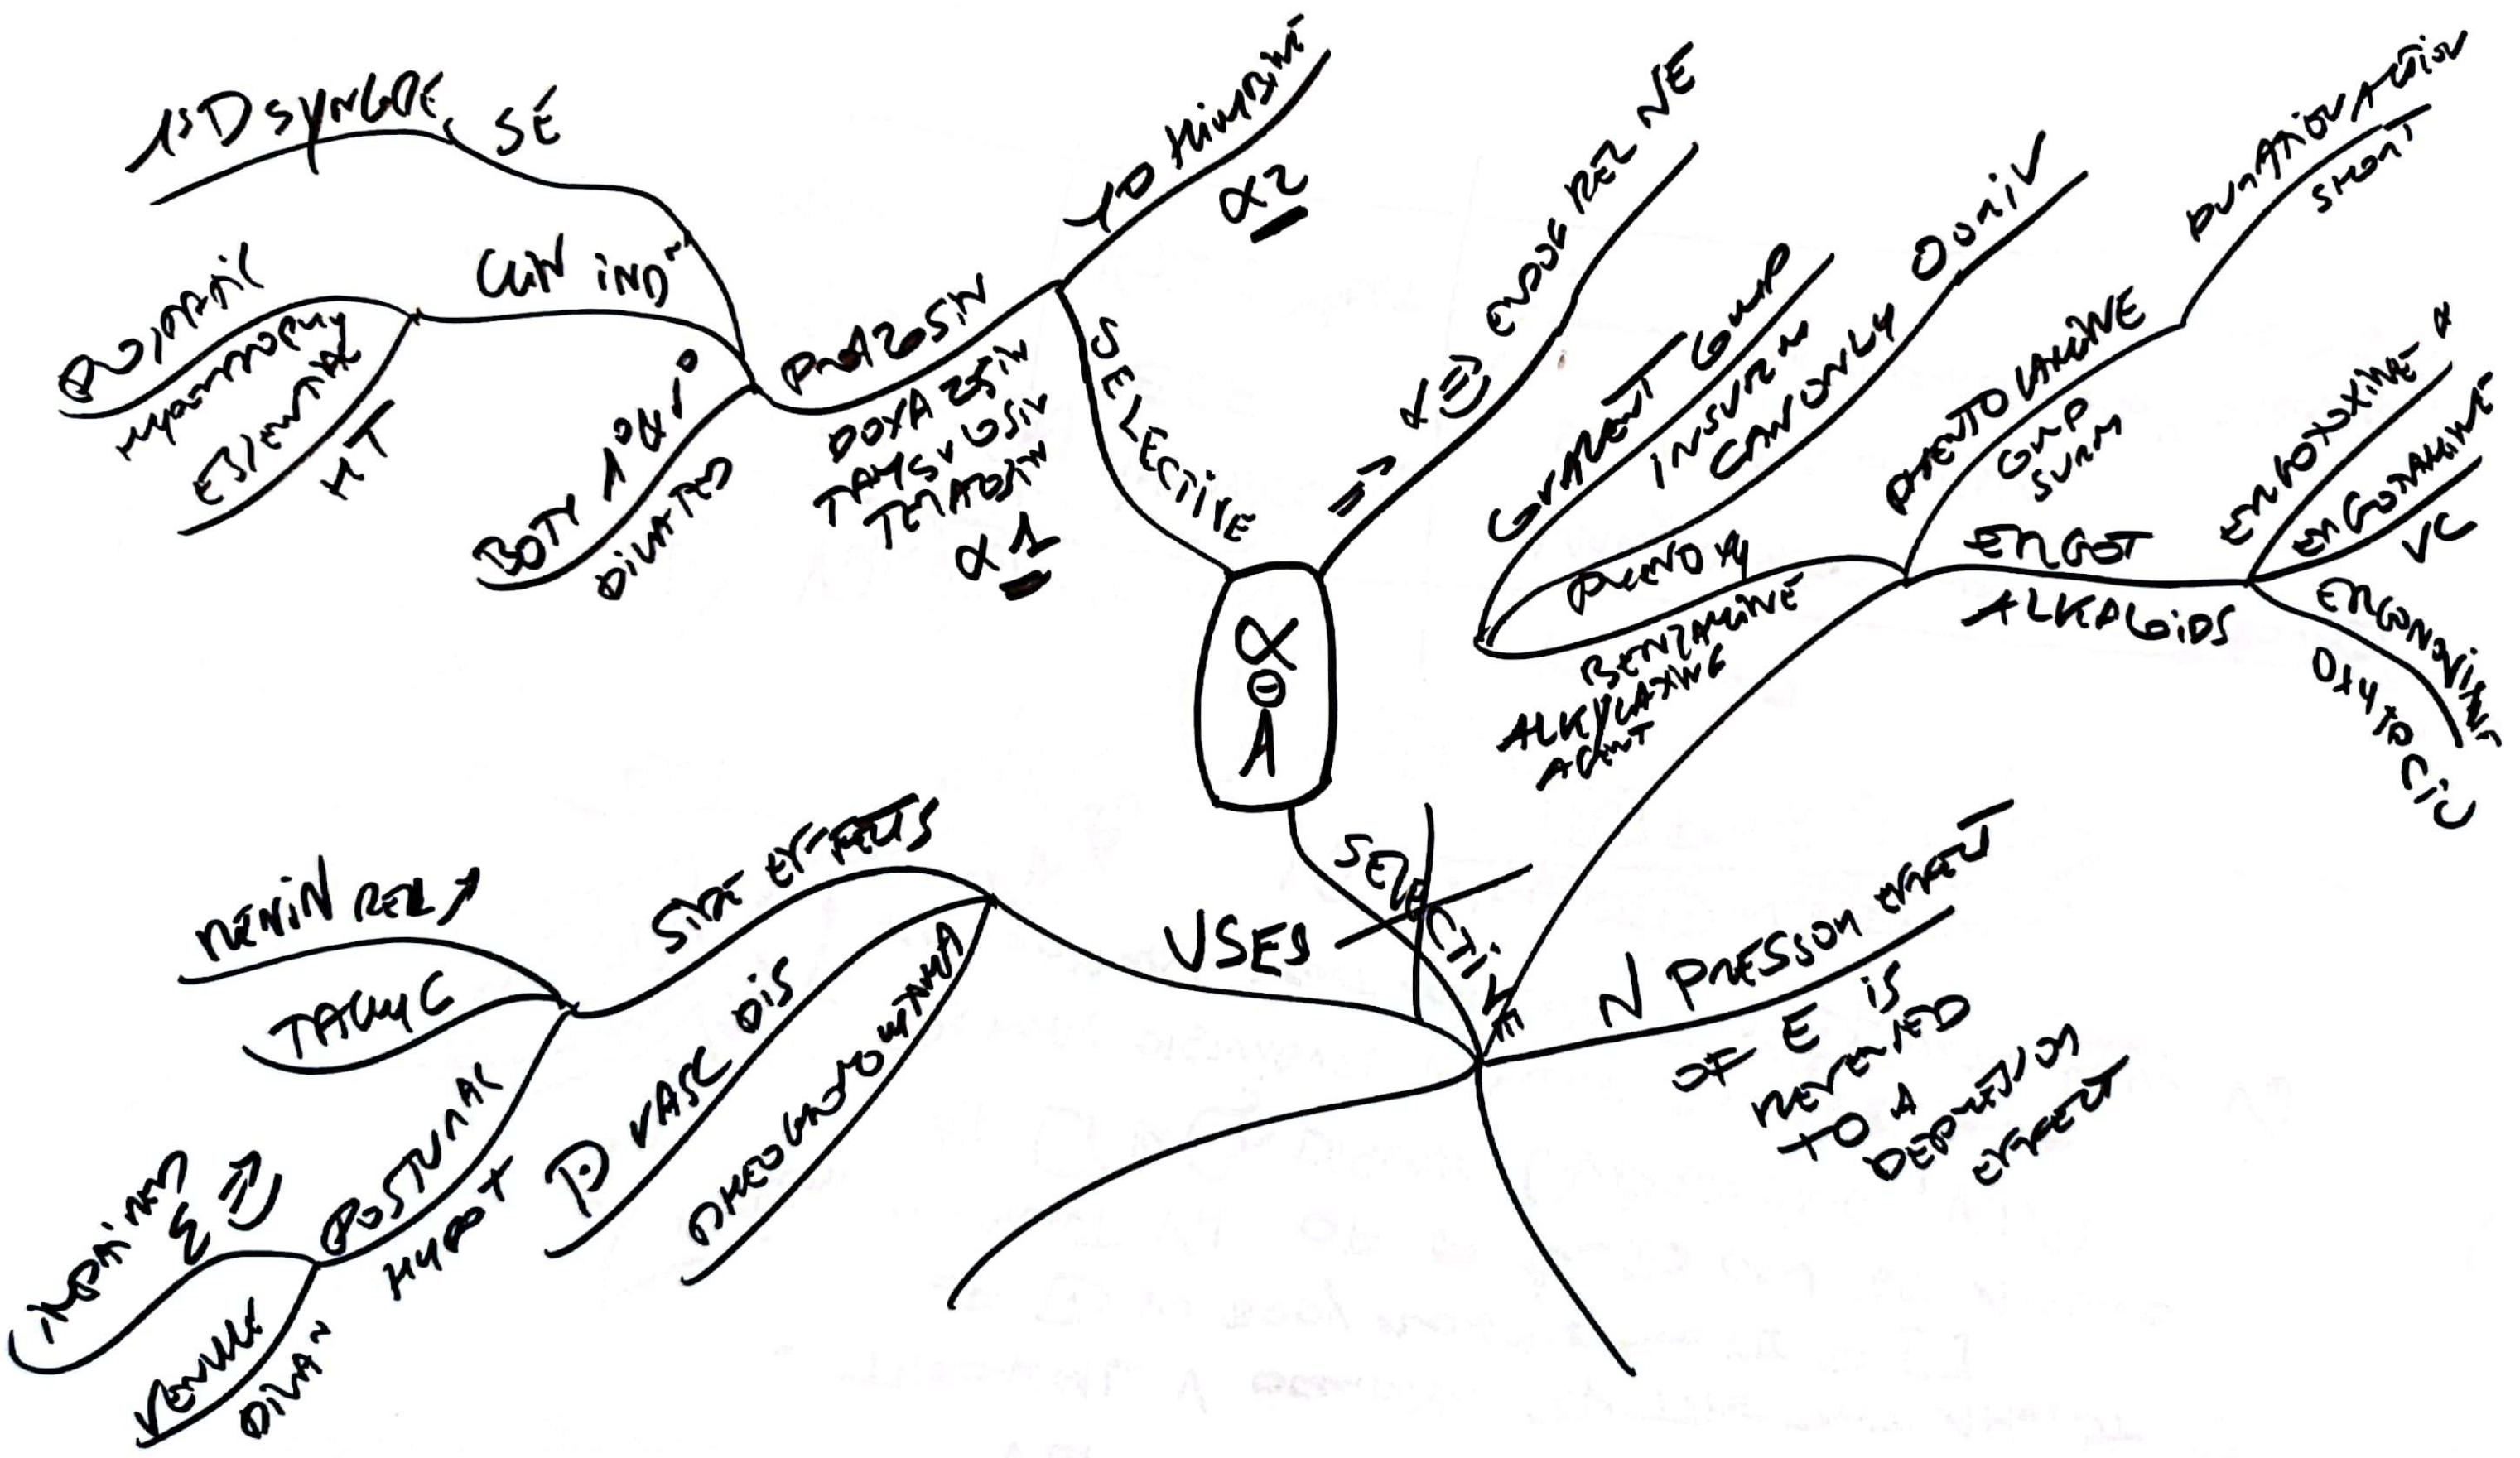 1SD SYNCOPE
SE
CLIN IND~
PROSTATIC
HYPERTROPHY
ESSENTIAL
HT
BOTH A° & V°
DILATED
PRAZOSIN
DOXAZOSIN
TAMSULOSIN
TERAZOSIN
α1
YOHIMBINE
α2
SELECTIVE
α
Θ
A
ENDOG REL NE
GRADENT GMP
IN SURM
CAN ONLY
O OR IV
PHENOXY
BENZAMINE
ALKYLATING
AGENT
PHENTOLAMINE
GMP
SURM
DURATION ACTION
SHORT
ERGOT
ALKALOIDS
ERGOTOXINE α
ERGOTAMINE
VC
ERGONOVINE
OXYTOCIC
SELECTIVE
N PRESSOR EFFECT
OF E IS
REVERSED
TO A
DEPRESSOR
EFFECT
USES
SIDE EFFECTS
RENIN REL ↗
TACHYC
POSTURAL
HYPOT
IMPAIRED
VENULE
DILAN
P VASC DIS
PHEOCHROMOCYTOMA